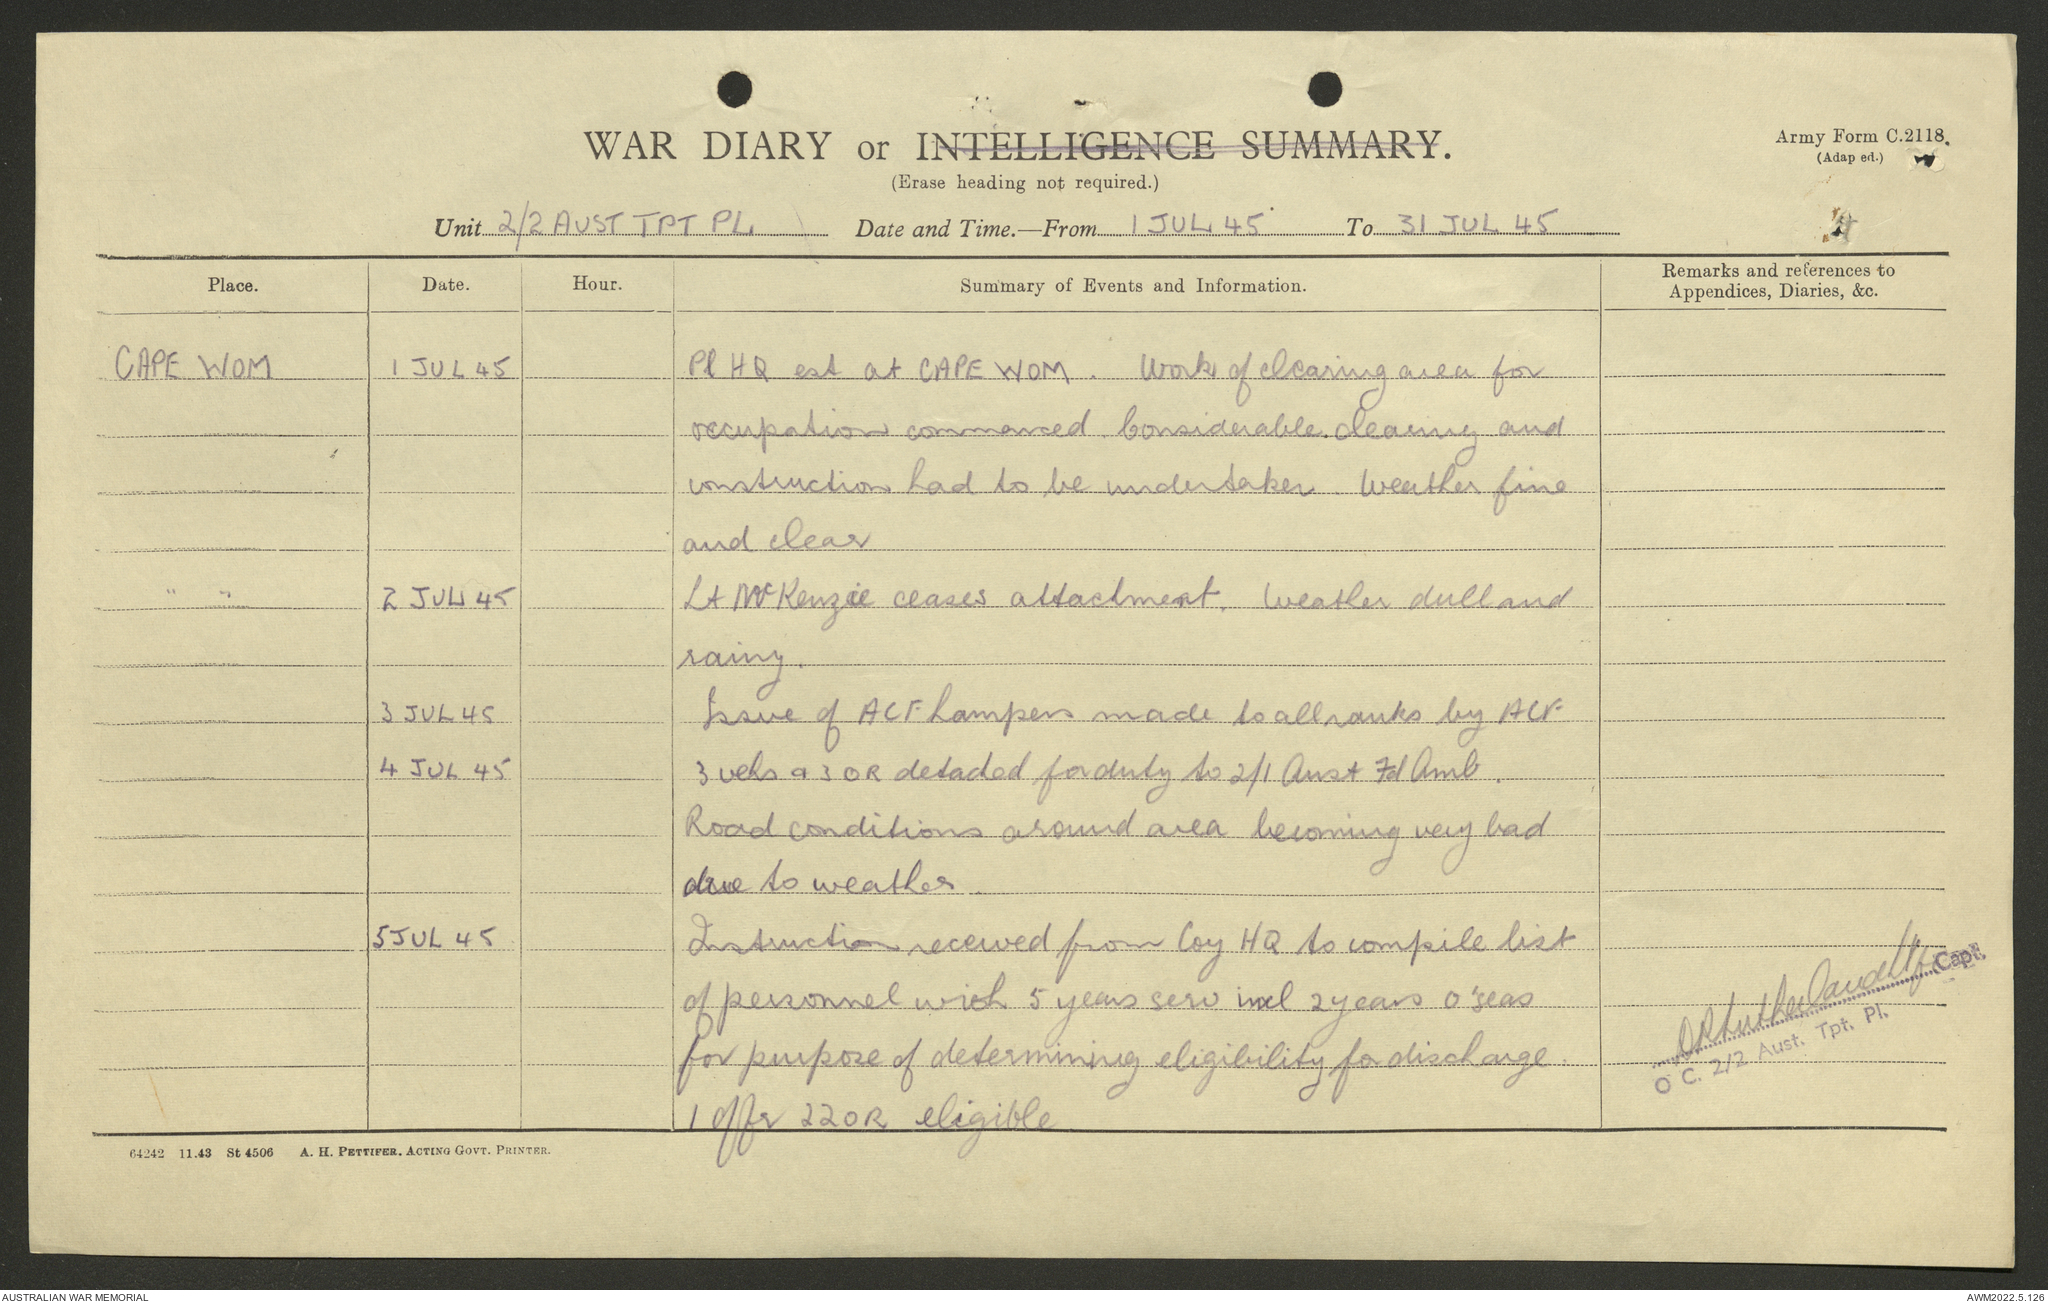 WAR DIARY or INTELLIGENCE SUMMARY.
Army Form C.2118.
(Adap ed.)
(Erase heading not required.)
Unit 2/2 AUST TPT PL Date and Time.—From 1 JUL 45 To 31 JUL 45
Place. Date. Hour. Summary of Events and Information. Remarks and references to Appendices, Diaries, &c.
CAPE WOM 1 JUL 45 Pl HQ est at CAPE WOM. Work of clearing area for
occupation commenced. Considerable clearing and
construction had to be undertaken. Weather fine
and clear
" " 2 JUL 45 Lt McKenzie ceases attachment. Weather dull and
rainy.
3 JUL 45 Issue of ACF hampers made to all ranks by ACF
4 JUL 45 3 vehs & 3 OR detached for duty to 2/1 Aust Fd Amb.
Road conditions around area becoming very bad
due to weather
5 JUL 45 Instruction received from Coy HQ to compile list
of personnel with 5 years serv incl 2 years o'seas
for purpose of determining eligibility for discharge.
1 offr 22 OR eligible
Capt.
O C. 2/2 Aust. Tpt. Pl.
64242 11.43 St 4506 A. H. PETTIFER. ACTING GOVT. PRINTER.
AUSTRALIAN WAR MEMORIAL
AWM2022.5.126